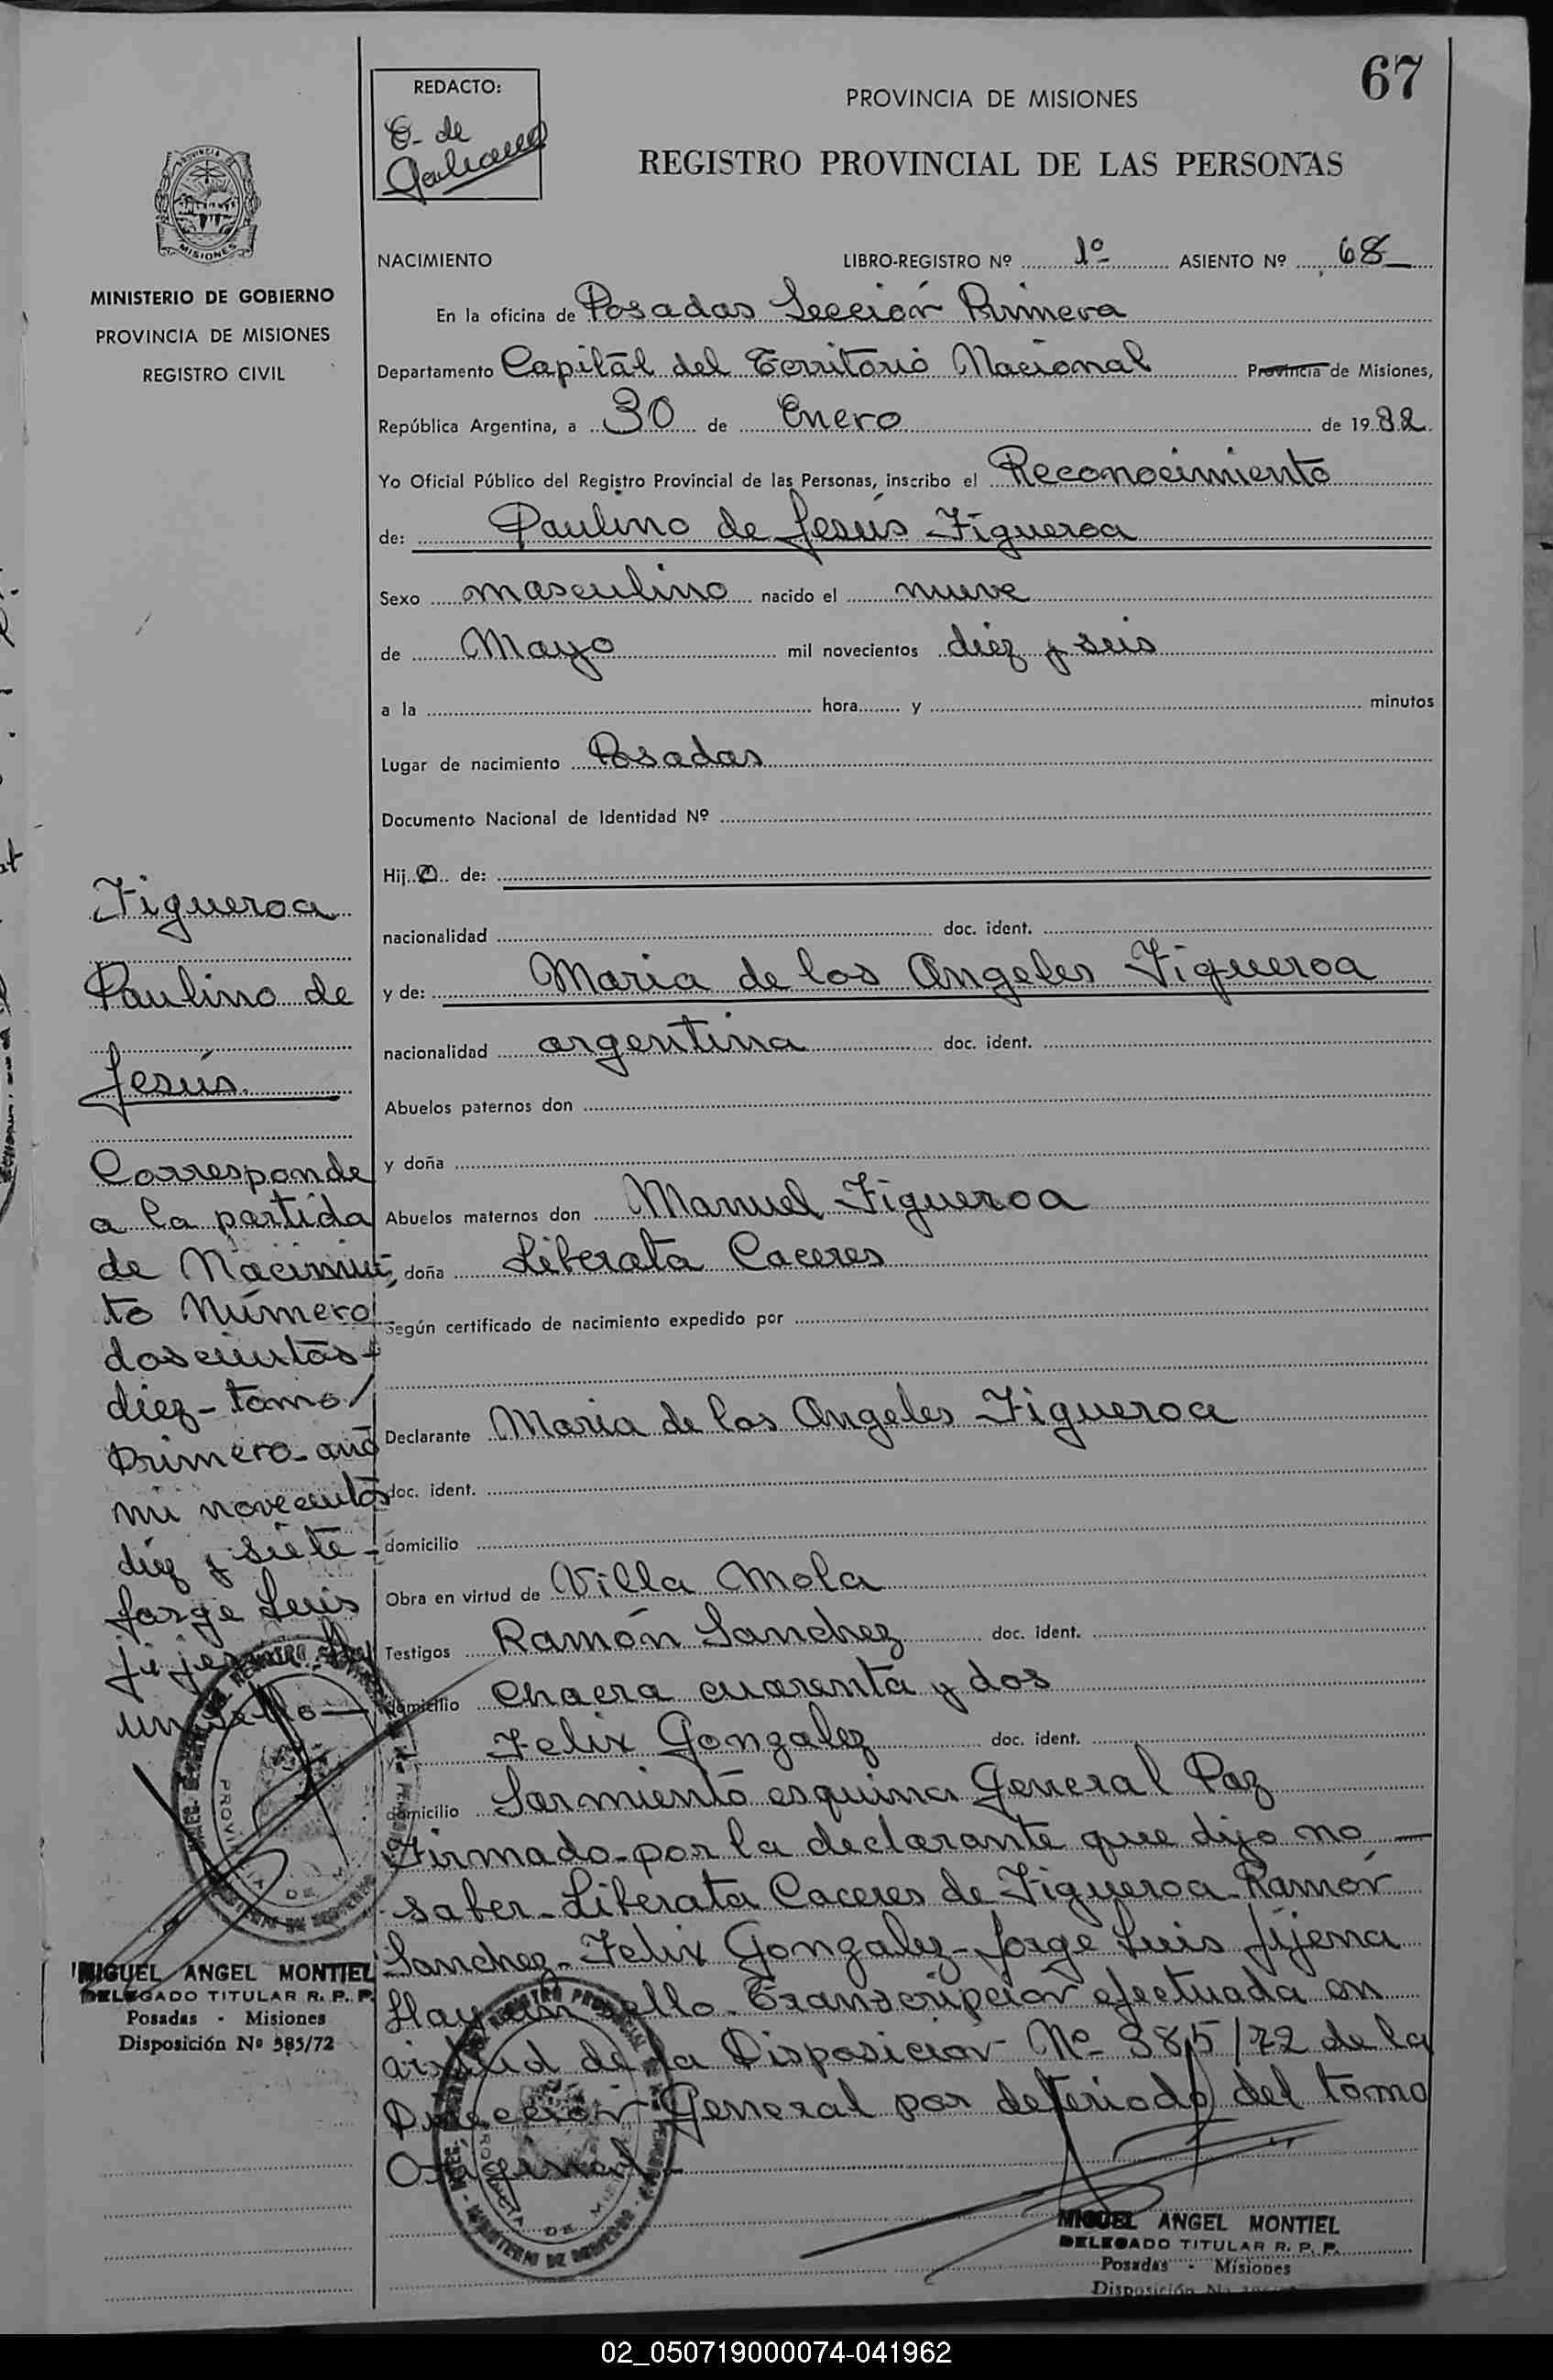 67
REDACTO:
E. de
Galeano
PROVINCIA DE MISIONES
REGISTRO PROVINCIAL DE LAS PERSONAS
PROVINCIA DE
MISIONES
MINISTERIO DE GOBIERNO
PROVINCIA DE MISIONES
REGISTRO CIVIL
NACIMIENTO LIBRO-REGISTRO Nº 1º ASIENTO Nº 68
En la oficina de Posadas Sección Primera
Departamento Capital del Territorio Nacional Provincia de Misiones,
República Argentina, a 30 de Enero de 1932
Yo Oficial Público del Registro Provincial de las Personas, inscribo el Reconocimiento
de: Paulino de Jesús Figueroa
Sexo masculino nacido el nueve
de Mayo mil novecientos diez y seis
a la hora y minutos
Lugar de nacimiento Posadas
Documento Nacional de Identidad Nº
Hijo de:
nacionalidad doc. ident.
y de: Maria de los Angeles Figueroa
nacionalidad argentina doc. ident.
Abuelos paternos don
y doña
Abuelos maternos don Manuel Figueroa
doña Liberata Caceres
Según certificado de nacimiento expedido por
Declarante Maria de los Angeles Figueroa
doc. ident.
domicilio
Obra en virtud de Villa Mola
Testigos Ramón Sanchez doc. ident.
domicilio Chacra cuarenta y dos
Felix Gonzalez doc. ident.
domicilio Sarmiento esquina General Paz
Firmado por la declarante que dijo no
saber - Liberata Caceres de Figueroa - Ramón
Sanchez - Felix Gonzalez - Jorge Luis Jijena
Hay un sello - Transcripción efectuada en
virtud de la Disposición Nº 385/72 de la
Dirección General por deteriodo del tomo
Original -
Figueroa
Paulino de
Jesús.
Corresponde
a la partida
de Nacimien
to Número
doscientos
diez - tomo
Primero - año
mil novecientos
diez y siete -
Jorge Luis
Jijena Hay
un sello -
MIGUEL ANGEL MONTIEL
DELEGADO TITULAR R. P. P.
Posadas - Misiones
Disposición Nº 385/72
MIGUEL ANGEL MONTIEL
DELEGADO TITULAR R. P. P.
Posadas - Misiones
Disposición Nº
02_050719000074-041962